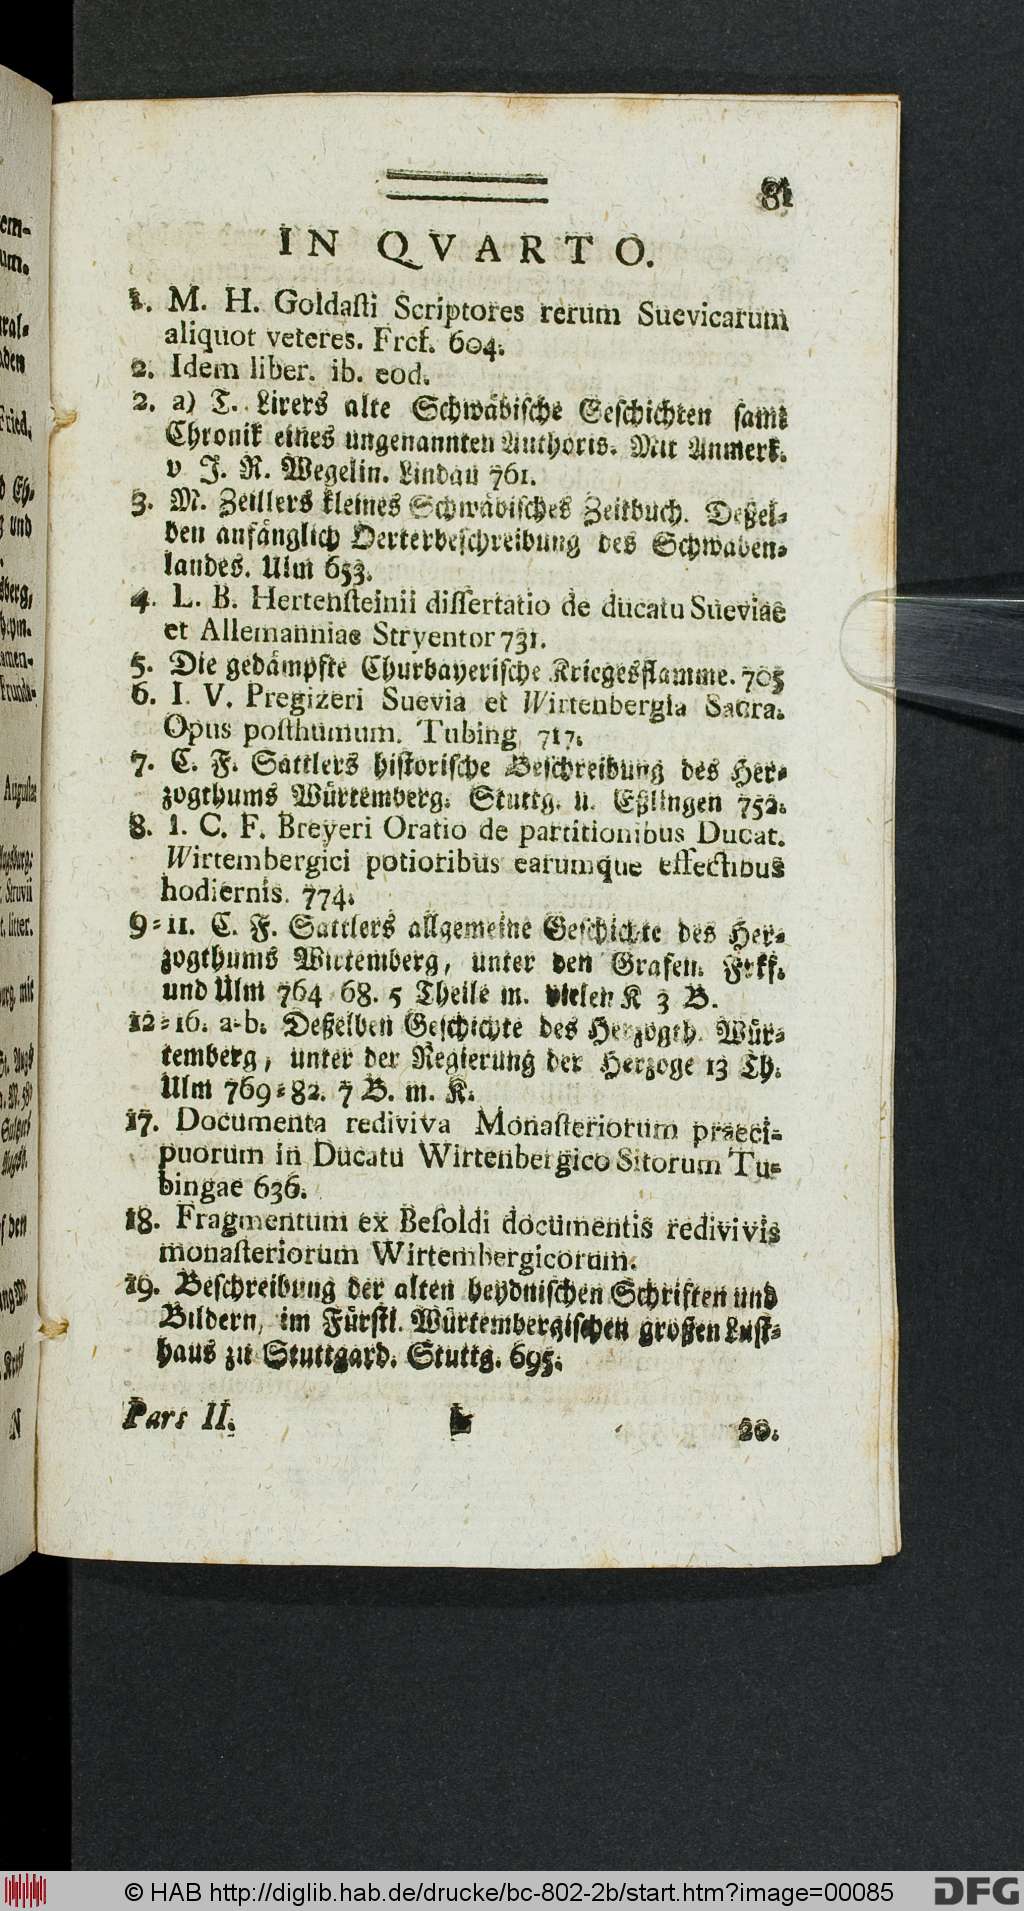 81
IN QVARTO.
1. M. H. Goldaſti Scriptores rerum Suevicarum
aliquot veteres. Frcf. 604.
2. Idem liber. ib. eod.
2. a) T. Lirers alte Schwäbiſche Geſchichten ſamt
Chronik eines ungenannten Authoris. Mit Anmerk.
v J. R. Wegelin. Lindau 761.
3. M. Zeillers kleines Schwäbiſches Zeitbuch. Deßel-
ben anfänglich Oerterbeſchreibung des Schwaben-
landes. Ulm 653.
4. L. B. Hertenſteinii diſſertatio de ducatu Sueviae
et Allemanniae Stryentor 731.
5. Die gedämpfte Churbayeriſche Kriegesflamme. 705
6. I. V. Pregizeri Suevia et Wirtenbergia Sacra.
Opus poſthumum. Tubing 717.
7. C. F. Sattlers hiſtoriſche Beſchreibung des Her-
zogthums Würtemberg. Stuttg. u. Eßlingen 752.
8. I. C. F. Breyeri Oratio de partitionibus Ducat.
Wirtembergici potioribus earumque effectibus
hodiernis. 774.
9-11. C. F. Sattlers allgemeine Geſchichte des Her-
zogthums Wirtemberg, unter den Grafen. Frkf.
und Ulm 764 68. 5 Theile m. vielen K 3 B.
12-16. a-b. Deßelben Geſchichte des Herzogth. Wür-
temberg, unter der Regierung der Herzoge 13 Th.
Ulm 769-82. 7 B. m. K.
17. Documenta rediviva Monaſteriorum praeci-
puorum in Ducatu Wirtenbergico Sitorum Tu-
bingae 636.
18. Fragmentum ex Beſoldi documentis redivivis
monaſteriorum Wirtembergicorum.
19. Beſchreibung der alten heydniſchen Schriften und
Bildern, im Fürſtl. Würtembergiſchen großen Luſt-
haus zu Stuttgard. Stuttg. 695.
Pars II.
20.
© HAB http://diglib.hab.de/drucke/bc-802-2b/start.htm?image=00085
DFG